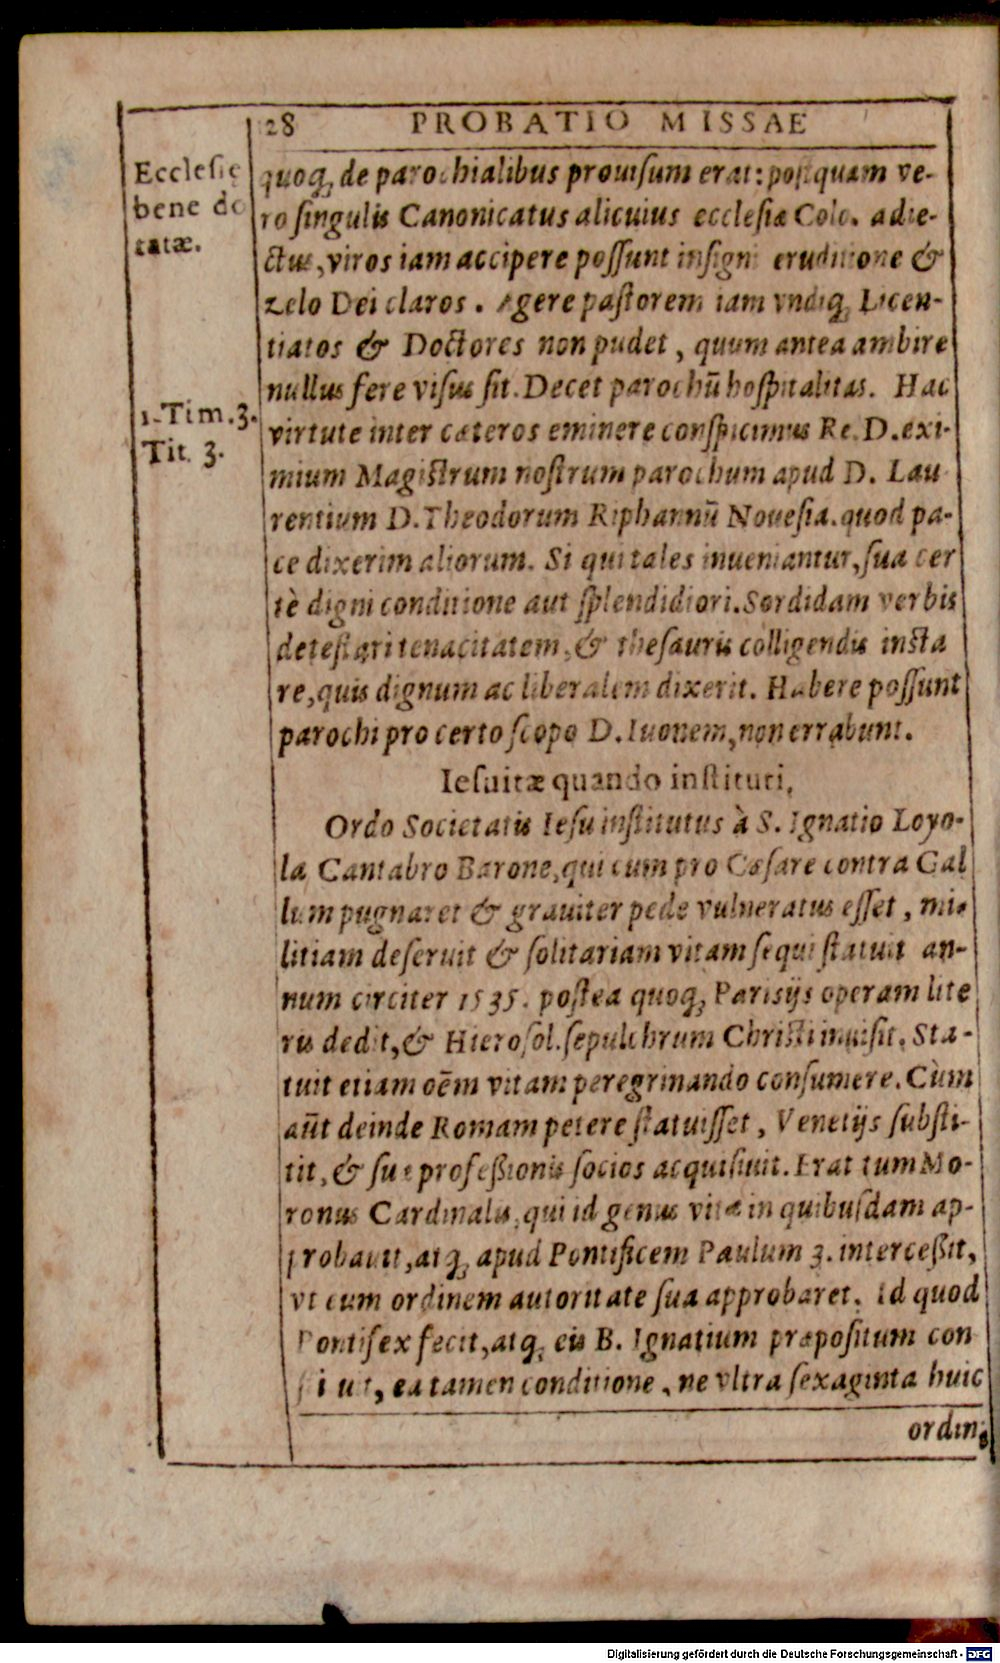 28 PROBATIO MISSAE
Ecclesię
bene do
tatæ.
quoq́; de parochialibus prouisum erat: postquam ve-
ro singulis Canonicatus alicuius ecclesiæ Colo. adie-
ctus, viros iam accipere possunt insigni eruditione &
zelo Dei claros. Agere pastorem iam vndiq́; Licen-
tiatos & Doctores non pudet, quum antea ambire
nullus fere visus sit. Decet parochū hospitalitas. Hac
1. Tim. 3.
Tit. 3.
virtute inter cæteros eminere conspicimus Re. D. exi-
mium Magistrum nostrum parochum apud D. Lau
rentium D. Theodorum Riphannū Nouesia. quod pa-
ce dixerim aliorum. Si qui tales inueniantur, sua cer
tè digni conditione aut splendidiori. Sordidam verbis
detestari tenacitatem, & thesauris colligendis insta
re, quis dignum ac liberalem dixerit. Habere possunt
parochi pro certo scopo D. Iuonem, non errabunt.
Iesuitæ quando instituti.
Ordo Societatis Iesu institutus à S. Ignatio Loyo-
la Cantabro Barone, qui cum pro Cæsare contra Gal
lum pugnaret & grauiter pede vulneratus esset, mi-
litiam deseruit & solitariam vitam sequi statuit an-
num circiter 1535. postea quoq́; Parisijs operam lite
ris dedit, & Hierosol. sepulchrum Christi inuisit. Sta-
tuit etiam oēm vitam peregrinando consumere. Cùm
aūt deinde Romam petere statuisset, Venetijs substi-
tit, & suæ professionis socios acquisiuit. Erat tum Mo-
ronus Cardinalis, qui id genus vitæ in quibusdam ap-
probauit, atq́; apud Pontificem Paulum 3. intercessit,
vt eum ordinem autoritate sua approbaret. Id quod
Pontifex fecit, atq́; eis B. Ignatium præpositum con
stituit, ea tamen conditione, ne vltra sexaginta huic
ordini
Digitalisierung gefördert durch die Deutsche Forschungsgemeinschaft - DFG